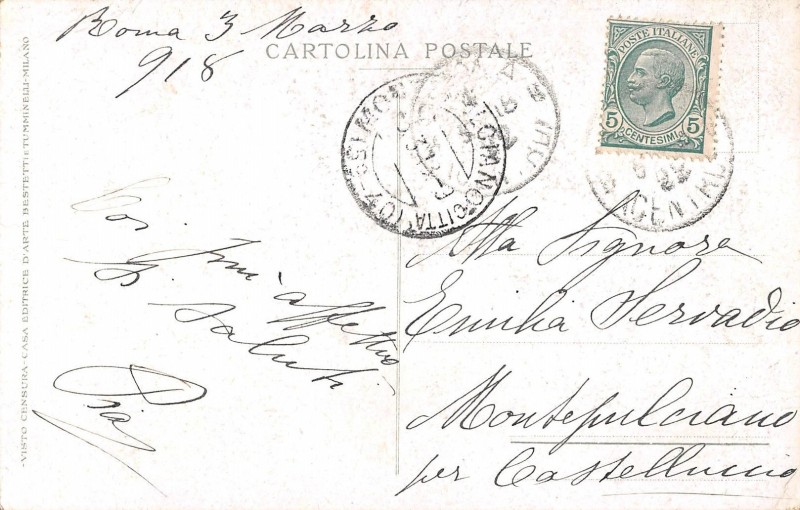 Roma 3 Marzo
918
CARTOLINA POSTALE
POSTE ITALIANE
5 5
CENTESIMI
CENTRO
Coi più affettuosi
saluti
Pia
Alla Signora
Emilia Servadio
Montepulciano
per Castelluccio
-VISTO CENSURA-CASA EDITRICE D'ARTE BESTETTI E TUMMINELLI-MILANO